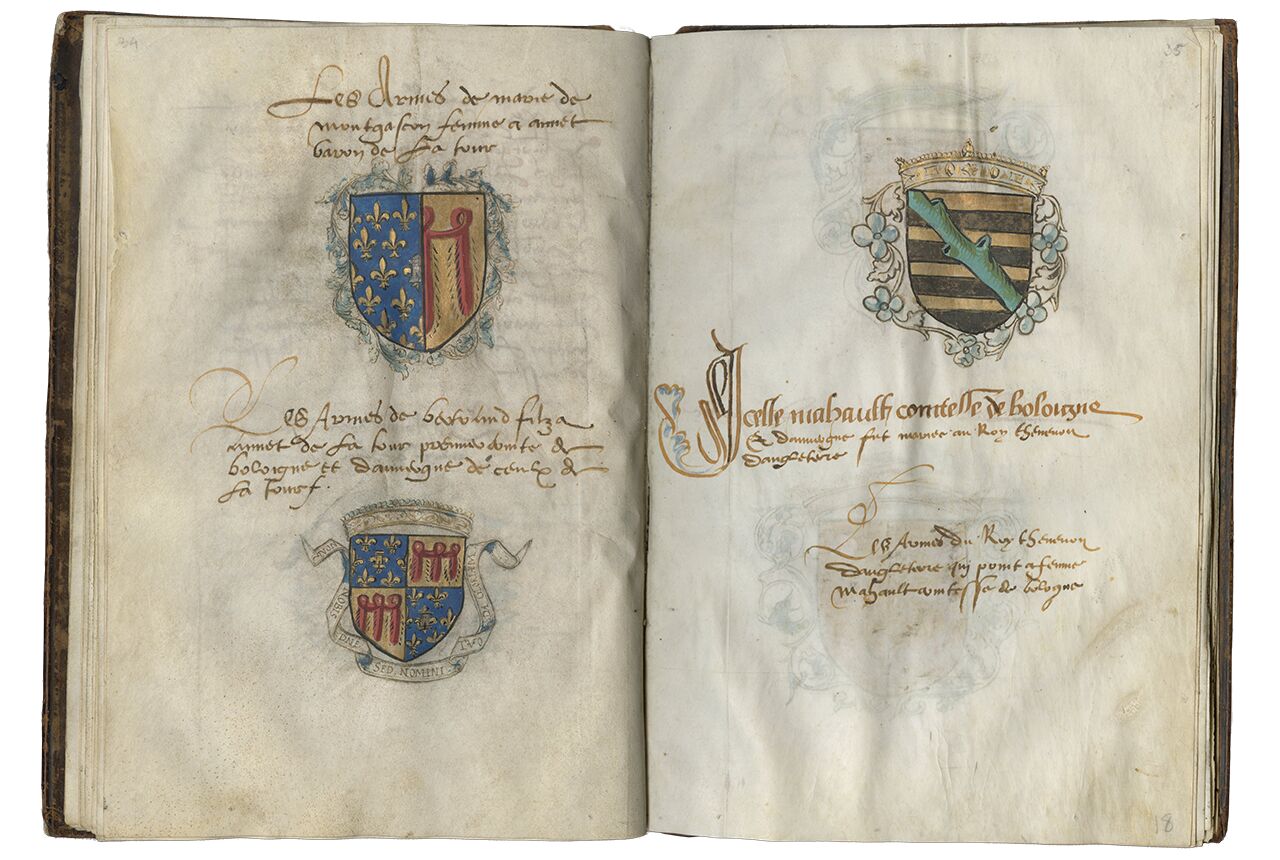 34
Les Armes de marie de
montgascon femme a annet
baron de la tour
Les Armes de bertrand filz a
annet de la tour premier comte de
boloigne et dauvergne de ceulx de
la tour
NON NOBIS DNE SED NOMINI TUO
35
Icelle mahault comtesse de boloigne
& dauvergne fut mariee au Roy
dangleterre
Les Armes du Roy
dangleterre qui a femme
Mahault comtesse de bologne
18